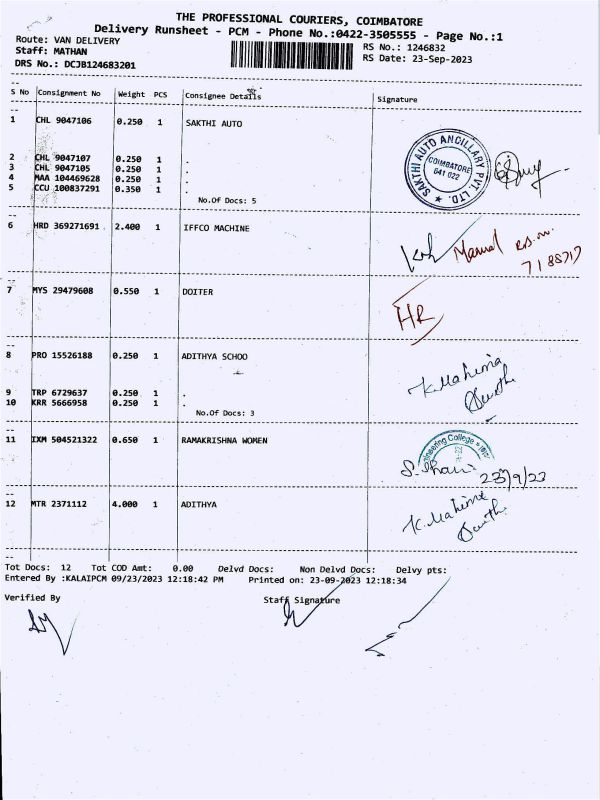 THE PROFESSIONAL COURIERS, COIMBATORE
Delivery Runsheet - PCM - Phone No.:0422-3505555 - Page No.:1
Route: VAN DELIVERY
RS No.: 1246832
Staff: MATHAN
RS Date: 23-Sep-2023
DRS No.: DCJB124683201
S No Consignment No Weight PCS Consignee Details Signature
1 CHL 9047106 0.250 1 SAKTHI AUTO
SAKTHI AUTO ANCILLARY PVT. LTD.
COIMBATORE
641 022
2 CHL 9047107 0.250 1 .
3 CHL 9047105 0.250 1 .
4 MAA 104469628 0.250 1 .
5 CCU 100837291 0.350 1 .
No.Of Docs: 5
6 HRD 369271691 2.400 1 IFFCO MACHINE
7 MYS 29479608 0.550 1 DOITER
HR
8 PRO 15526188 0.250 1 ADITHYA SCHOO
K. Mahima
9 TRP 6729637 0.250 1 .
10 KRR 5666958 0.250 1 .
No.Of Docs: 3
11 IXM 504521322 0.650 1 RAMAKRISHNA WOMEN
Engineering College
23/9/23
12 MTR 2371112 4.000 1 ADITHYA
K. Mahima
Tot Docs: 12 Tot COD Amt: 0.00 Delvd Docs: Non Delvd Docs: Delvy pts:
Entered By :KALAIPCM 09/23/2023 12:18:42 PM Printed on: 23-09-2023 12:18:34
Verified By Staff Signature